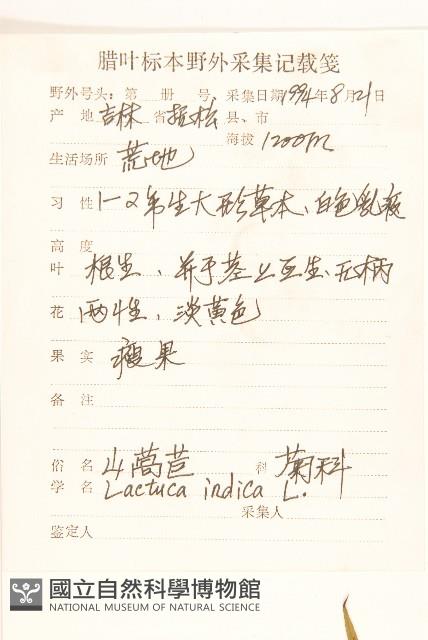 腊叶标本野外采集记载笺
野外号头：第 册 号、采集日期1994年8月21日
产 地 吉林 省 抚松 县、市
海拔 1200m
生活场所 荒地
习 性 1-2年生大形草本、白色乳液
高 度
叶 根生、并于茎上互生、无柄
花 两性，淡黄色
果 实 瘦果
备 注
俗 名 山莴苣 科 菊科
学 名 Lactuca indica L.
采集人
鉴定人
國立自然科學博物館
NATIONAL MUSEUM OF NATURAL SCIENCE